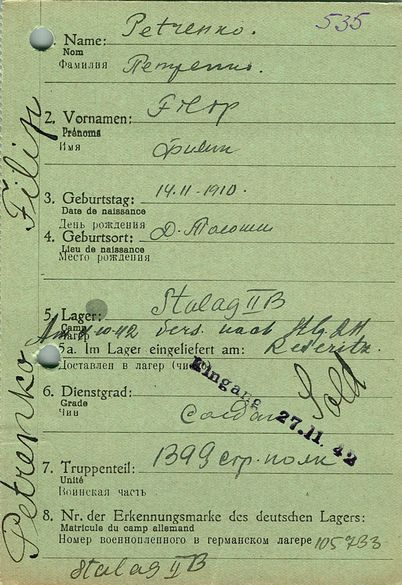 535
1. Name: Petrenko.
Nom
Фамилия Петренко.
2. Vornamen: Filip
Prénoms
Имя Филип
3. Geburtstag: 14.11.1910.
Date de naissance
День рождения
4. Geburtsort: Д.
Lieu de naissance
Место рождения
5. Lager: Stalag II B
Camp
Лагерь
Am 10.42 vers. nach
5a. Im Lager eingeliefert am:
Доставлен в лагерь
Eingang 27.11.42
6. Dienstgrad: Солдат Sold
Grade
Чин
7. Truppenteil: 1399 стр. полк
Unité
Воинская часть
8. Nr. der Erkennungsmarke des deutschen Lagers:
Matricule du camp allemand
Номер военнопленного в германском лагере 105733
Stalag II B
Petrenko Filip